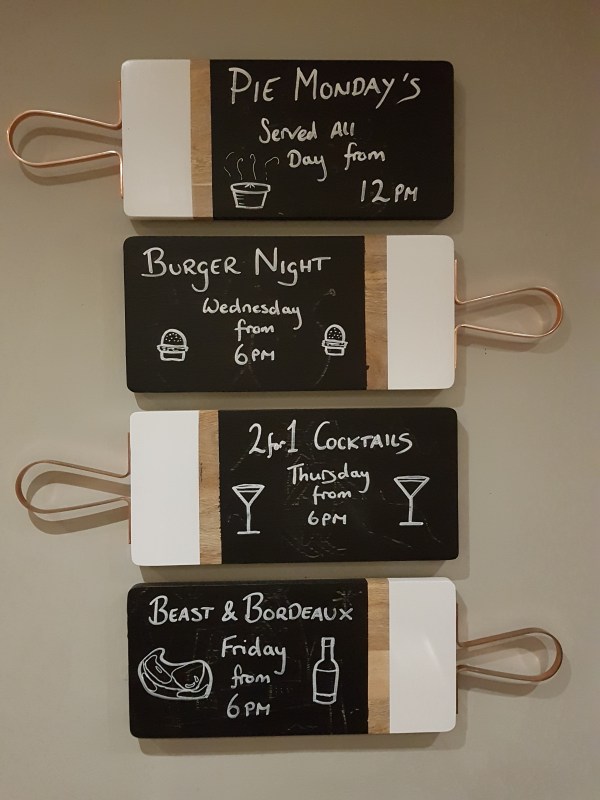 PIE MONDAY'S
Served All
Day from
12PM
BURGER NIGHT
Wednesday
from
6PM
2 for 1 COCKTAILS
Thursday
from
6PM
BEAST & BORDEAUX
Friday
from
6PM